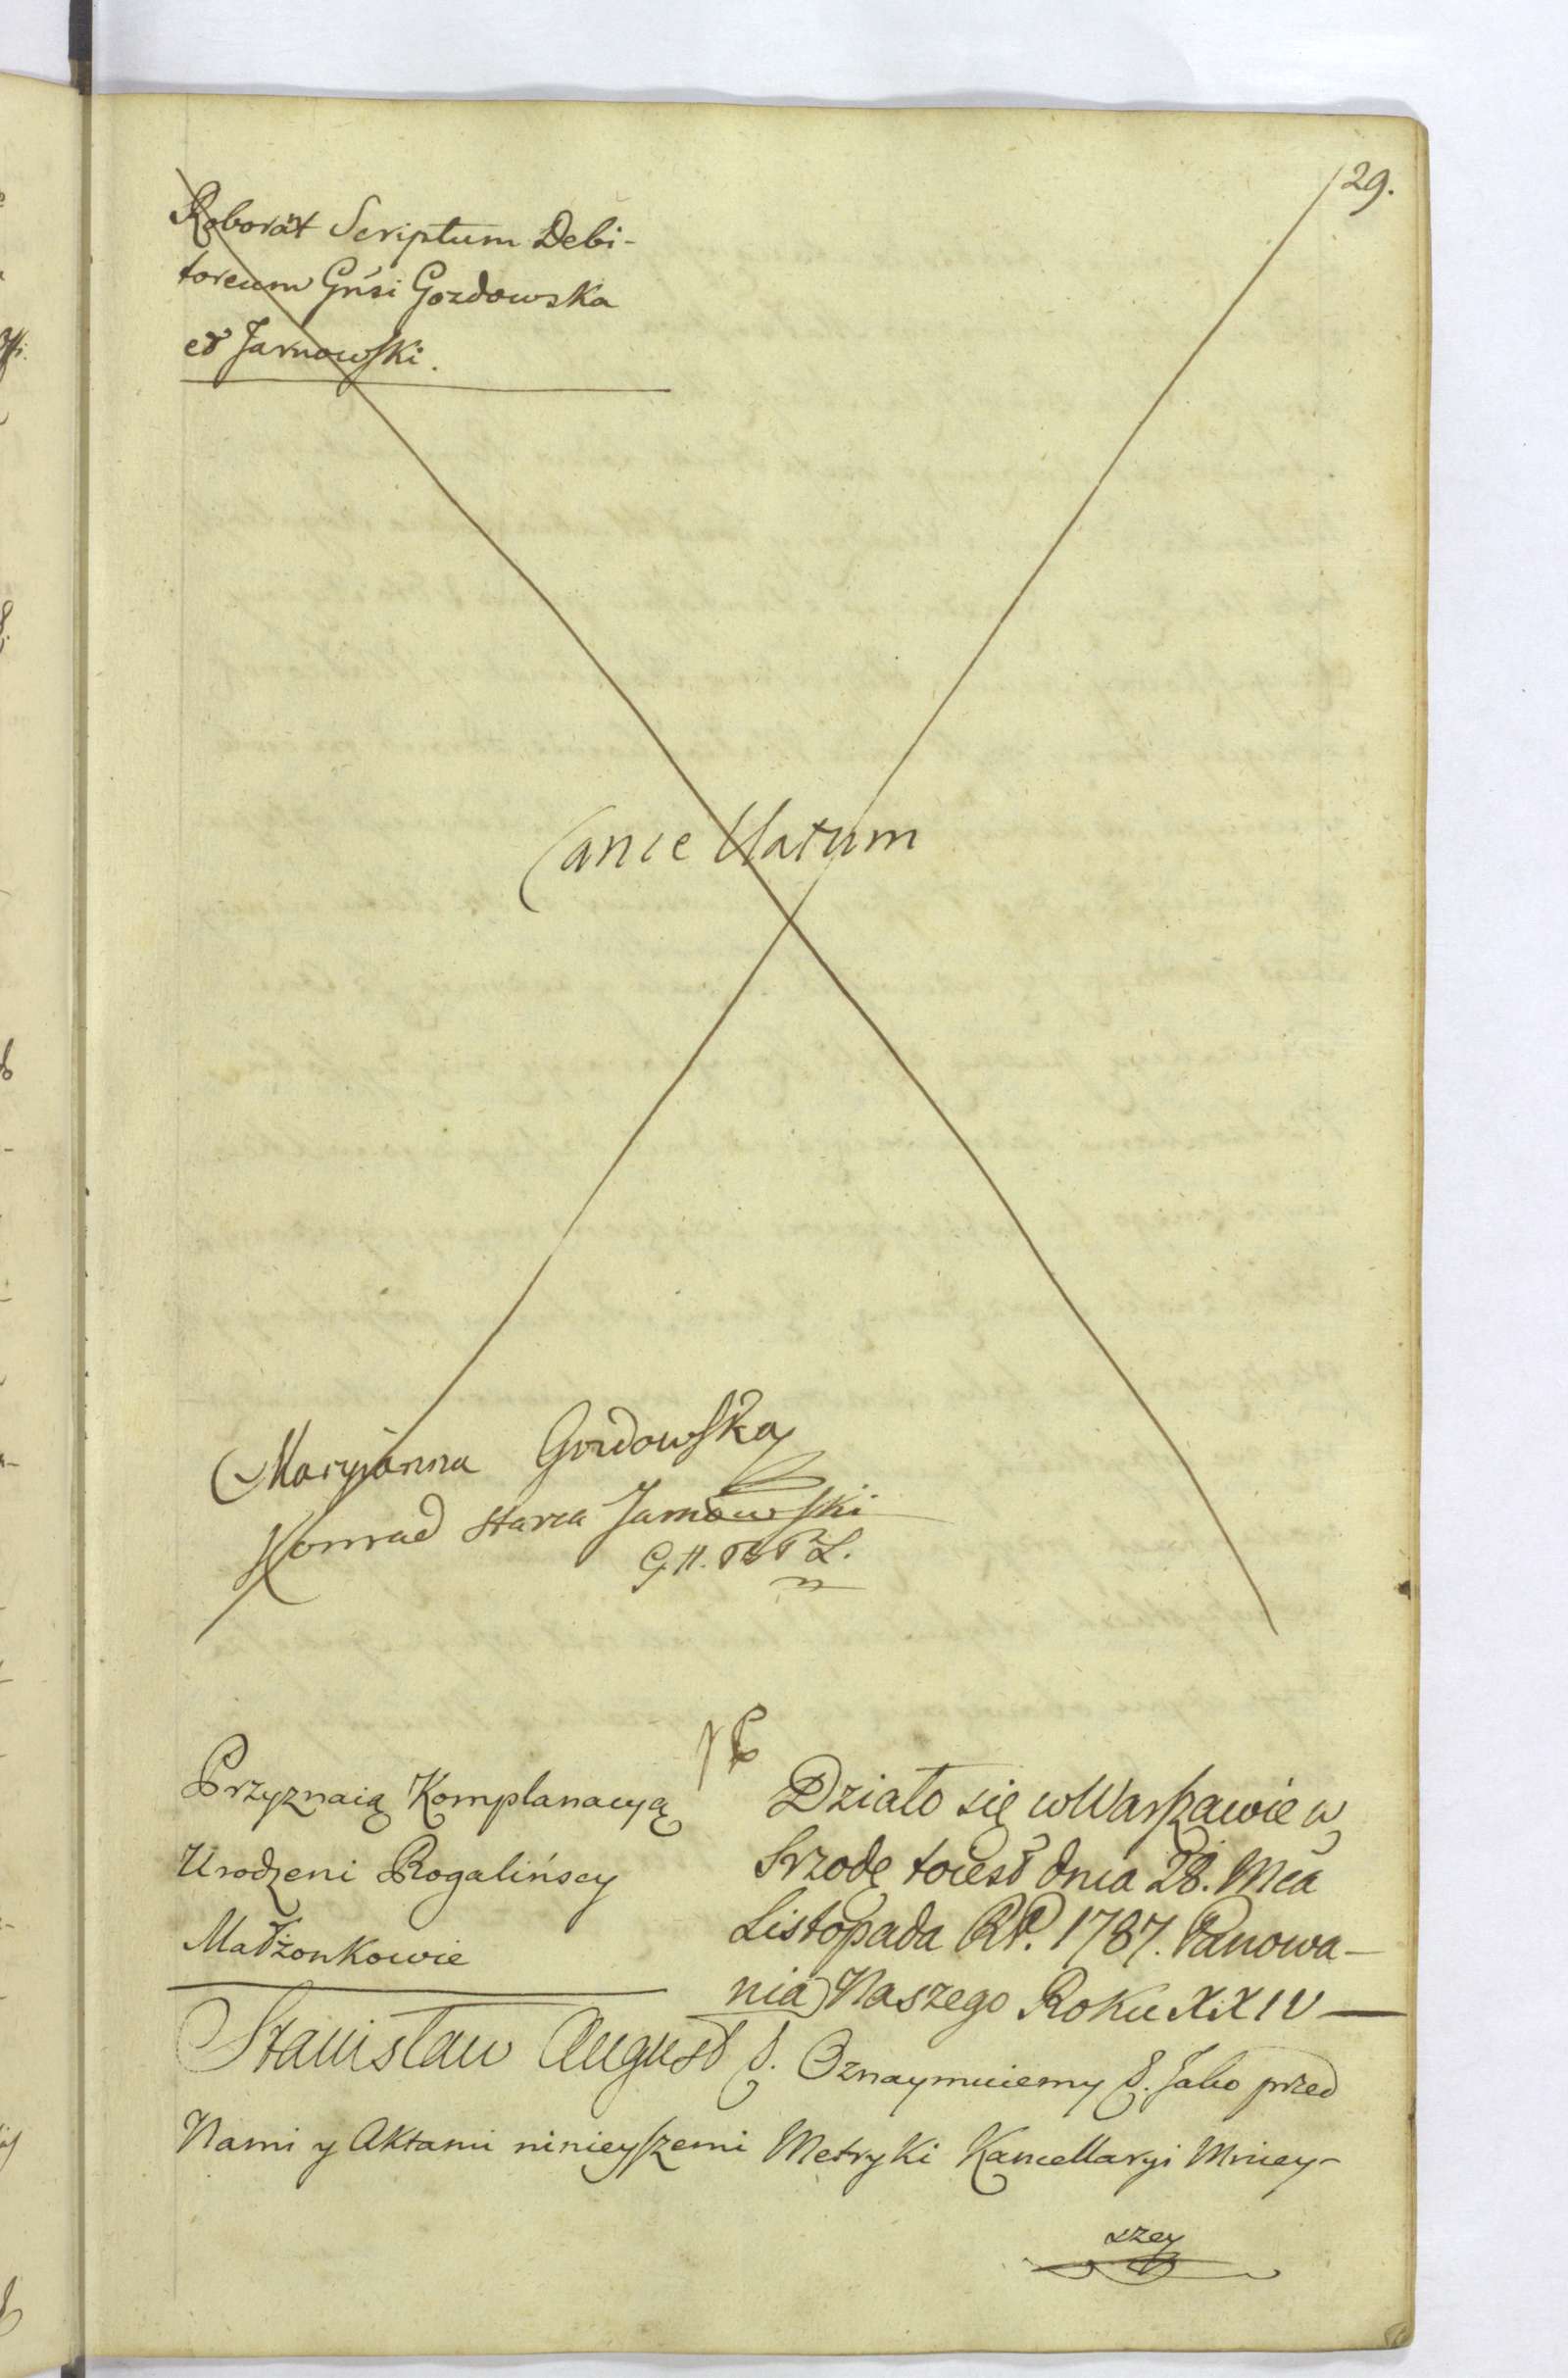 29.
Roborat Scriptum Debi-
toreum Gnsi Gozdowska
et Jarnowski.
Cancellatum
Maryianna Gozdowska
Konrad Starza Jarnowski
Przyznaią Komplanacyą
Urodzeni Rogalińscy
Małżonkowie
Działo się w Warszawie w
Srzodę toiest dnia 28. Mca
Listopada RP. 1787. Panowa-
nia Naszego Roku XXIV
Stanisław August &. Oznaymuiemy &. Jako przed
Nami y Aktami ninieyszemi Metryki Kancellaryi Mniey-
szey